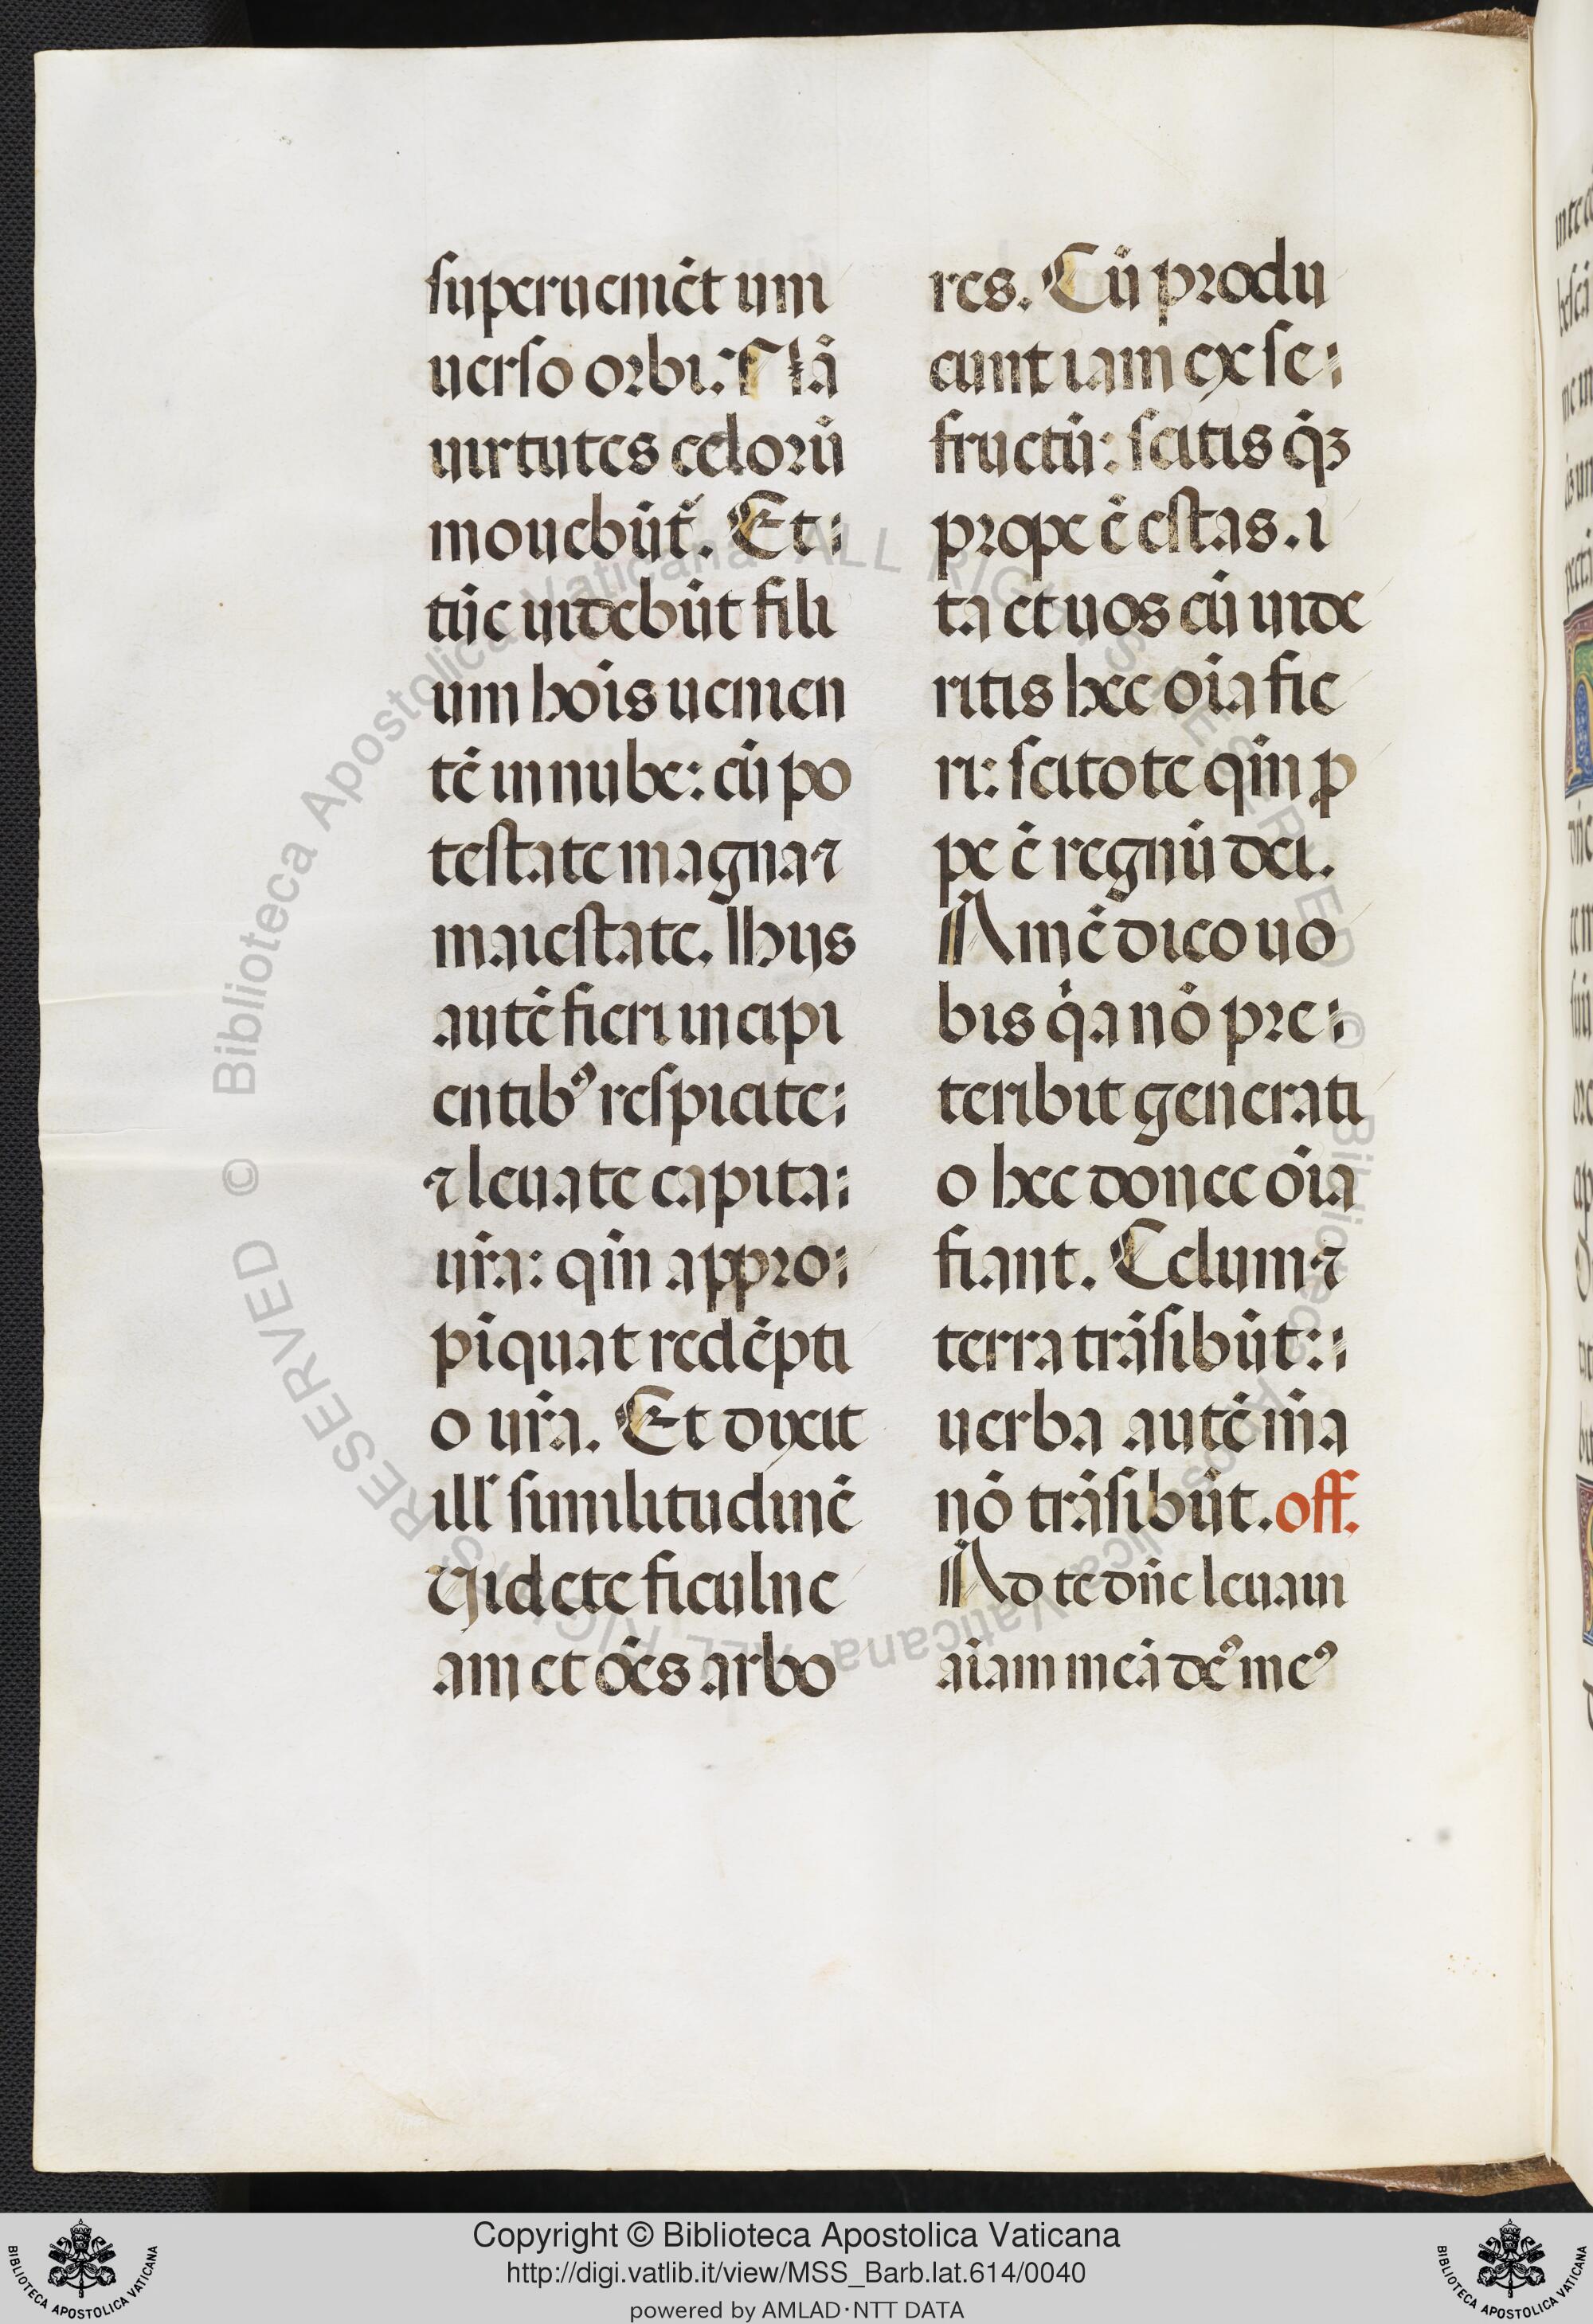 superueniēt uni
uerso orbi: Nā
uirtutes celorū
mouebūt᷑. Et
tūc uidebūt fili
um hoīs uenien
tē in nube: cū po
testate magna ⁊
maiestate. Hijs
autē fieri incipi
entibꝰ respicite:
⁊ leuate capita
ur̄a: qm̄ appro
pīquat redēpti
o ur̄a. Et dixit
ill' similitudinē
Videte ficulne
am et oēs arbo
res. Cū produ
cunt iam ex se
fructū: scitis qꝫ
prope ē estas. i
ta et uos cū uide
ritis hec oīa fie
ri: scitote qm̄ ꝓ
pe ē regnū dei.
Amē dico uo
bis qͥa nō pre
teribit generati
o hec donec oīa
fiant. Celum ⁊
terra trāsibūt:
uerba autē m̄a
nō trāsibūt. off.
Ad te dn̄e leuaui
aīam meā deꝰ meꝰ
© Biblioteca Apostolica Vaticana ALL RIGHTS RESERVED
© Biblioteca Apostolica Vaticana ALL RIGHTS RESERVED
Copyright © Biblioteca Apostolica Vaticana
http://digi.vatlib.it/view/MSS_Barb.lat.614/0040
powered by AMLAD·NTT DATA
BIBLIOTECA APOSTOLICA VATICANA
BIBLIOTECA APOSTOLICA VATICANA